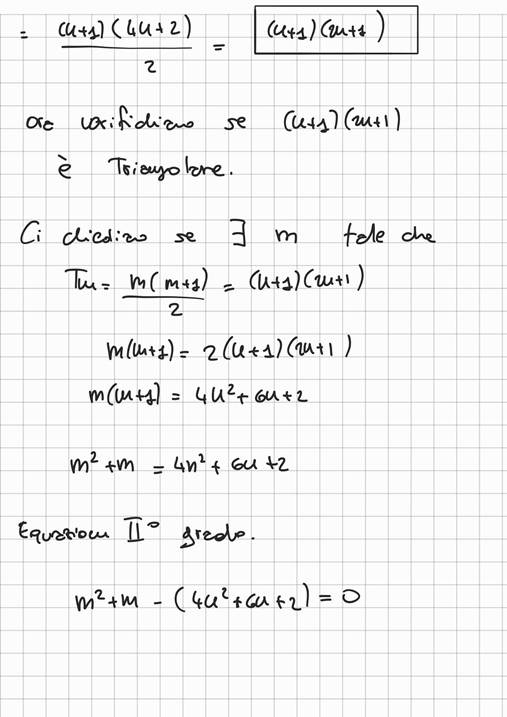 = (n+1)(4n+2)/2 = (n+1)(2n+1)
ora verifichiamo se (n+1)(2n+1)
è Triangolare.
Ci chiediamo se ∃ m tale che
Tm = m(m+1)/2 = (n+1)(2n+1)
m(m+1) = 2(n+1)(2n+1)
m(m+1) = 4n²+6n+2
m²+m = 4n²+6n+2
Equazioni II° grado.
m²+m - (4n²+6n+2) = 0